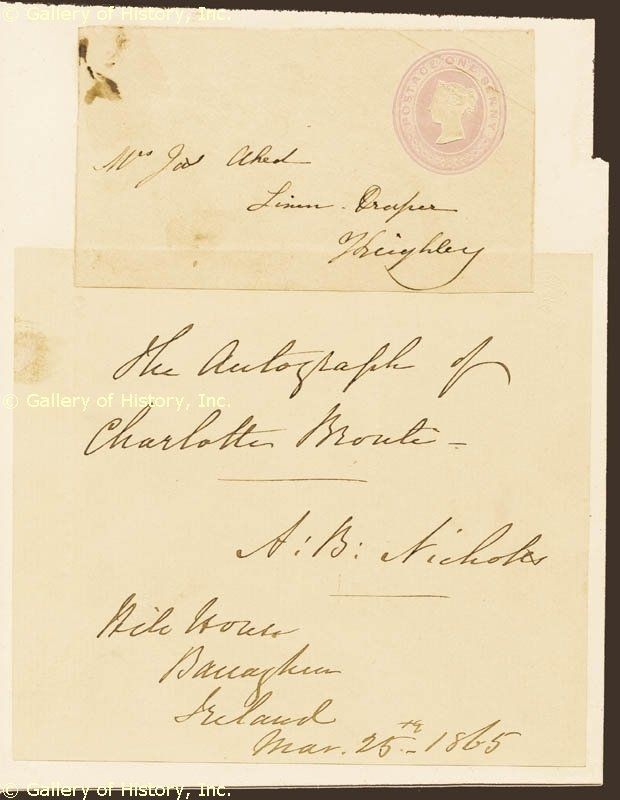 © Gallery of History, Inc.
POSTAGE ONE PENNY
Mrs Jas Aked
Linen Draper
Keighley
The Autograph of
© Gallery of History, Inc.
Charlotte Brontë -
A: B: Nicholls
Hill House
Banagher
Ireland
Mar. 25th - 1865
© Gallery of History, Inc.